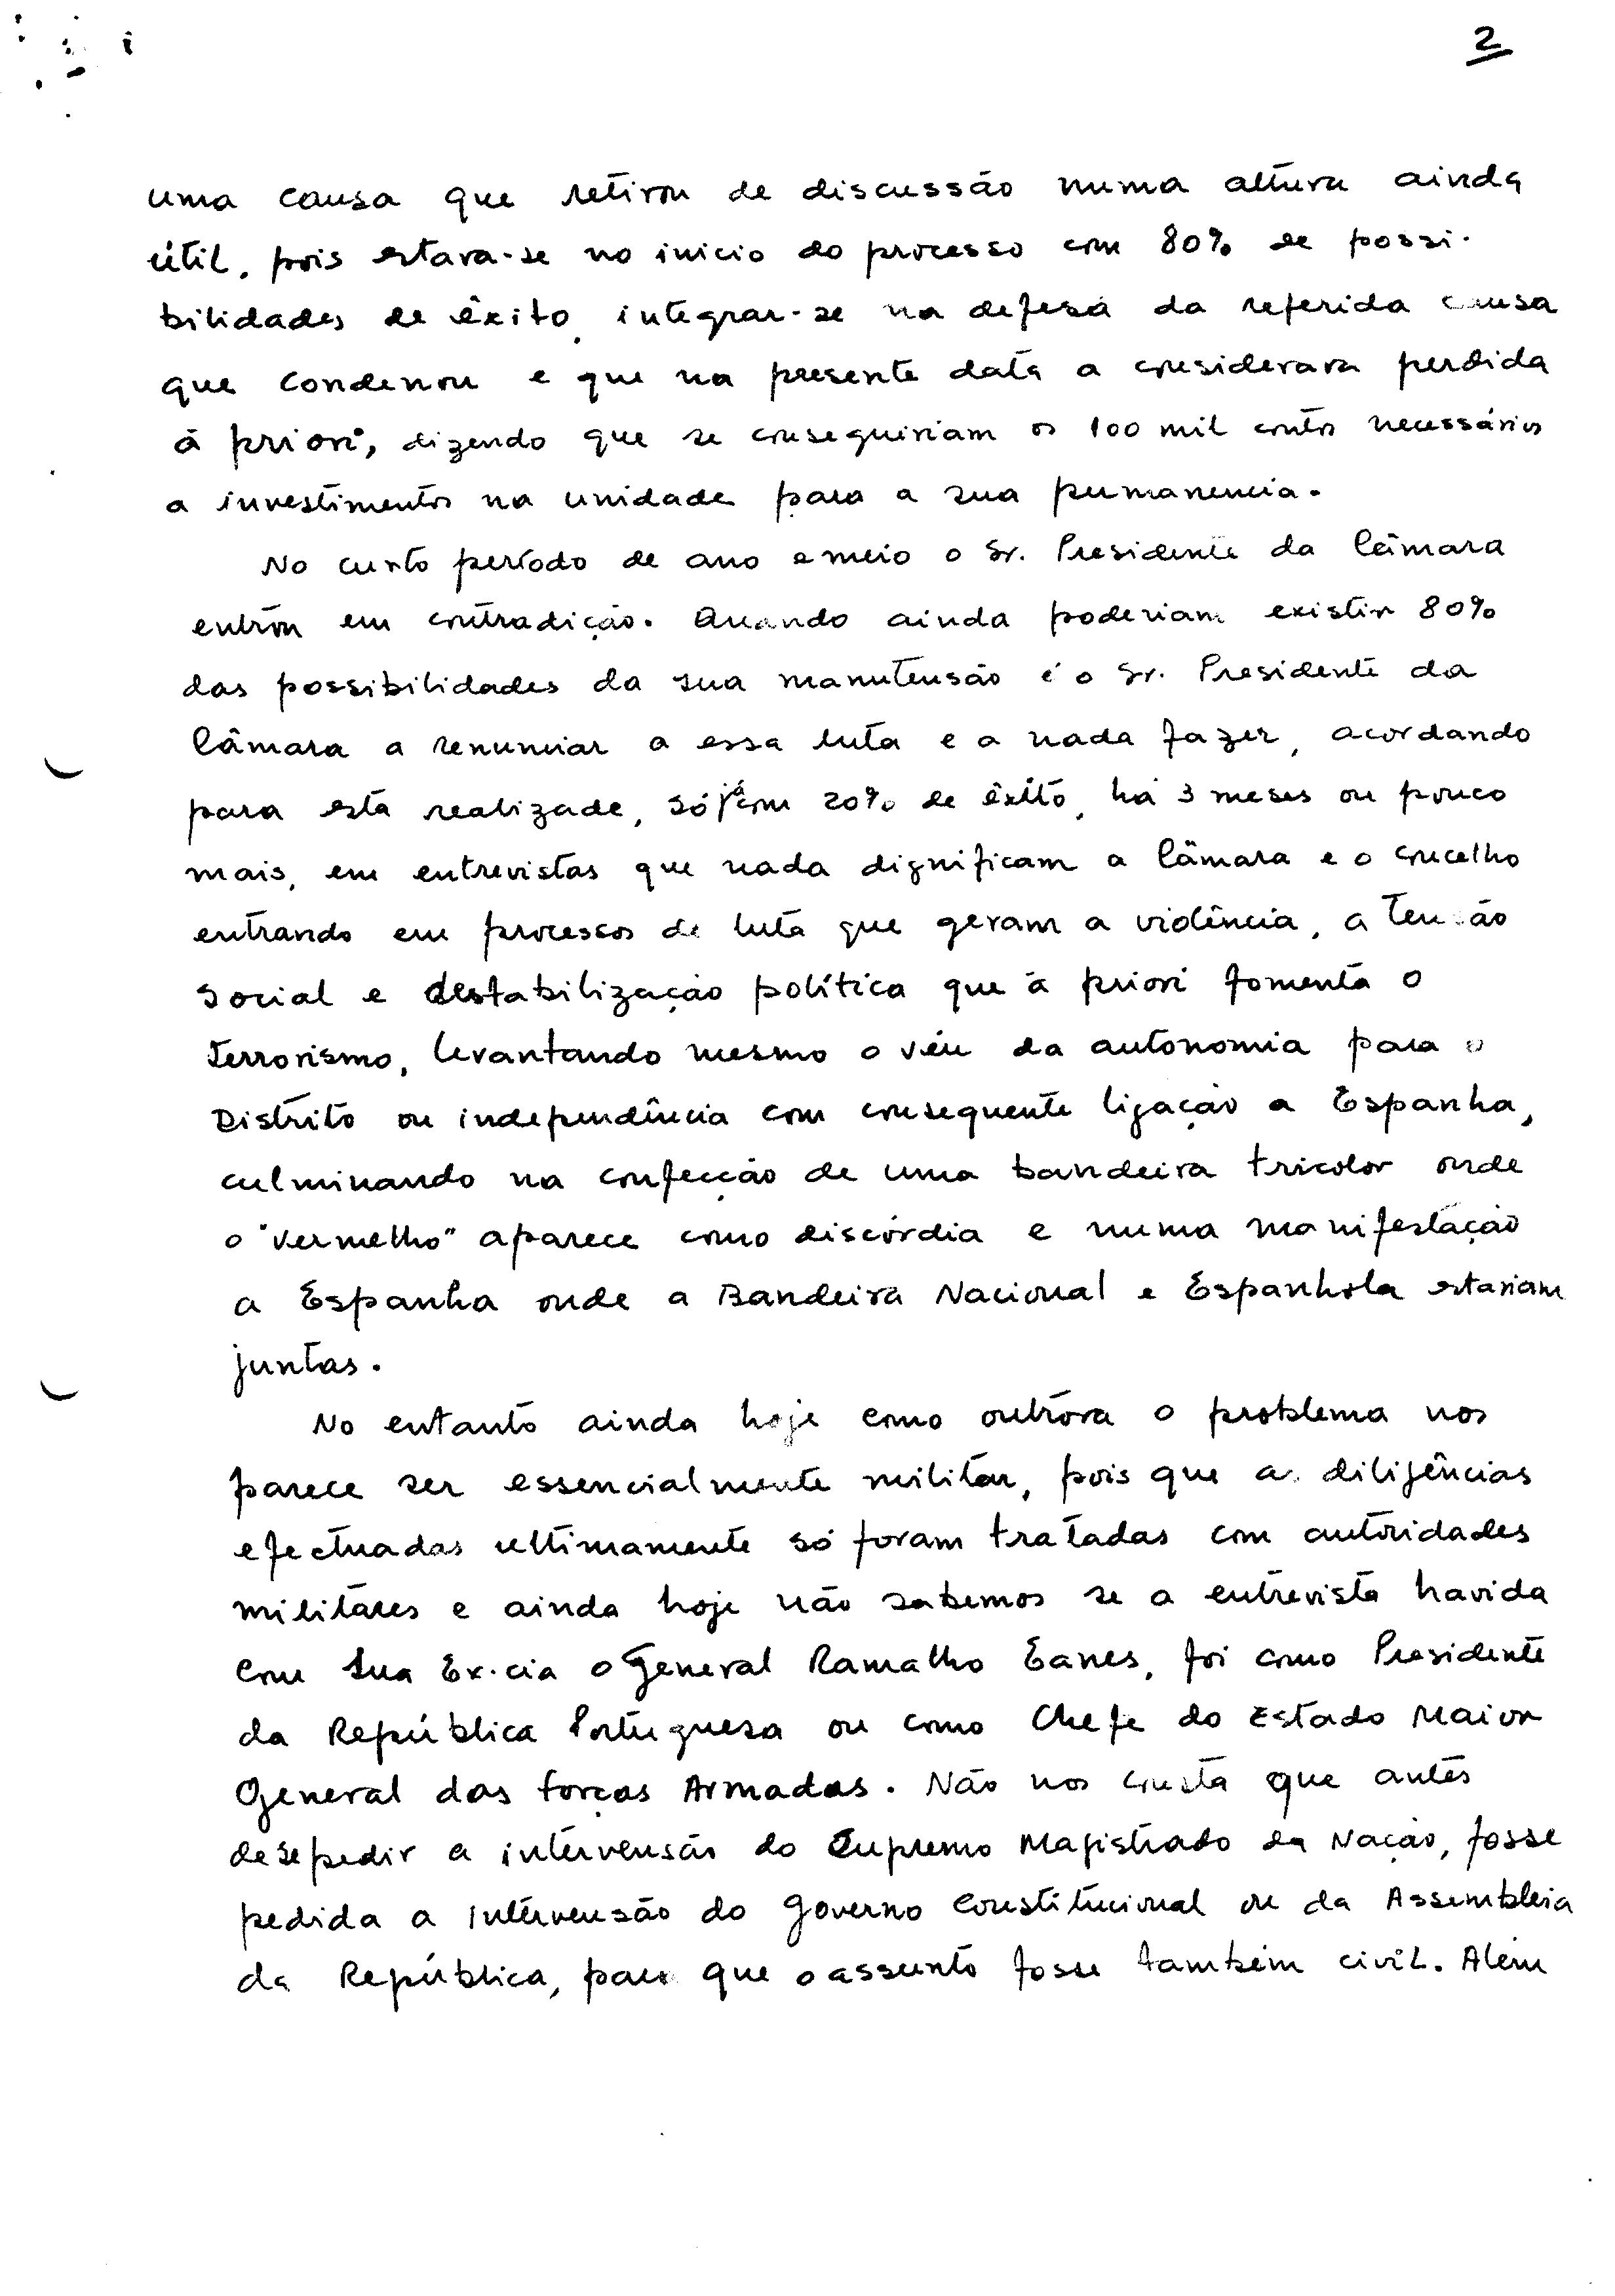 2
uma causa que retirou de discussão numa altura ainda
útil, pois estava-se no inicio do processo com 80% de possi-
bilidades de êxito, integrar-se na defesa da referida causa
que condenou e que na presente data a considerava perdida
á priori, dizendo que se conseguiriam os 100 mil contos necessários
a investimentos na unidade para a sua permanencia.
No curto período de ano e meio o Sr. Presidente da Câmara
entrou em contradição. Quando ainda poderiam existir 80%
das possibilidades da sua manutensão é o Sr. Presidente da
Câmara a renunciar a essa luta e a nada fazer, acordando
para esta realizade, só já com 20% de êxito, há 3 meses ou pouco
mais, em entrevistas que nada dignificam a Câmara e o concelho
entrando em processos de luta que geram a violência, a tensão
social e destabilização política que á priori fomenta o
terrorismo, levantando mesmo o véu da autonomia para o
Distrito ou independência com consequente ligação a Espanha,
culminando na confecção de uma bandeira tricolor onde
o "vermelho" aparece como discórdia e numa manifestação
a Espanha onde a Bandeira Nacional e Espanhola estariam
juntas.
No entanto ainda hoje como outrora o problema nos
parece ser essencialmente militar, pois que as diligências
efectuadas ultimamente só foram tratadas com autoridades
militares e ainda hoje não sabemos se a entrevista havida
com Sua Ex.cia o General Ramalho Eanes, foi como Presidente
da República Portuguesa ou como Chefe do Estado Maior
General das Forças Armadas. Não nos consta que antes
de se pedir a intervensão do Supremo Magistrado da Nação, fosse
pedida a intervensão do Governo Constitucional ou da Assembleia
da República, para que o assunto fosse também civil. Além